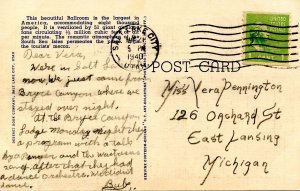 This beautiful Ballroom is the largest in
America, accommodating eight thousand
people. It is ventilated by 51 giant
fans circulating ½ million cubic feet of air
per minute. The romantic atmosphere of the
South Sea Isles permeates the
the tourists' mecca.
SALT LAKE CITY
5 PM
1940
UTAH
POST CARD
Dear Vera,
We're in Salt Lake
now. We just came from
Bryce Canyon where we
stayed over night.
At the Bryce Canyon
Lodge Monday night they had
a program with a talk
by a Ranger and the waitresses
sang, after that she had
a dance orchestra, we did not
dance. Bub.
Miss Vera Pennington
126 Orchard St
East Lansing
Michigan